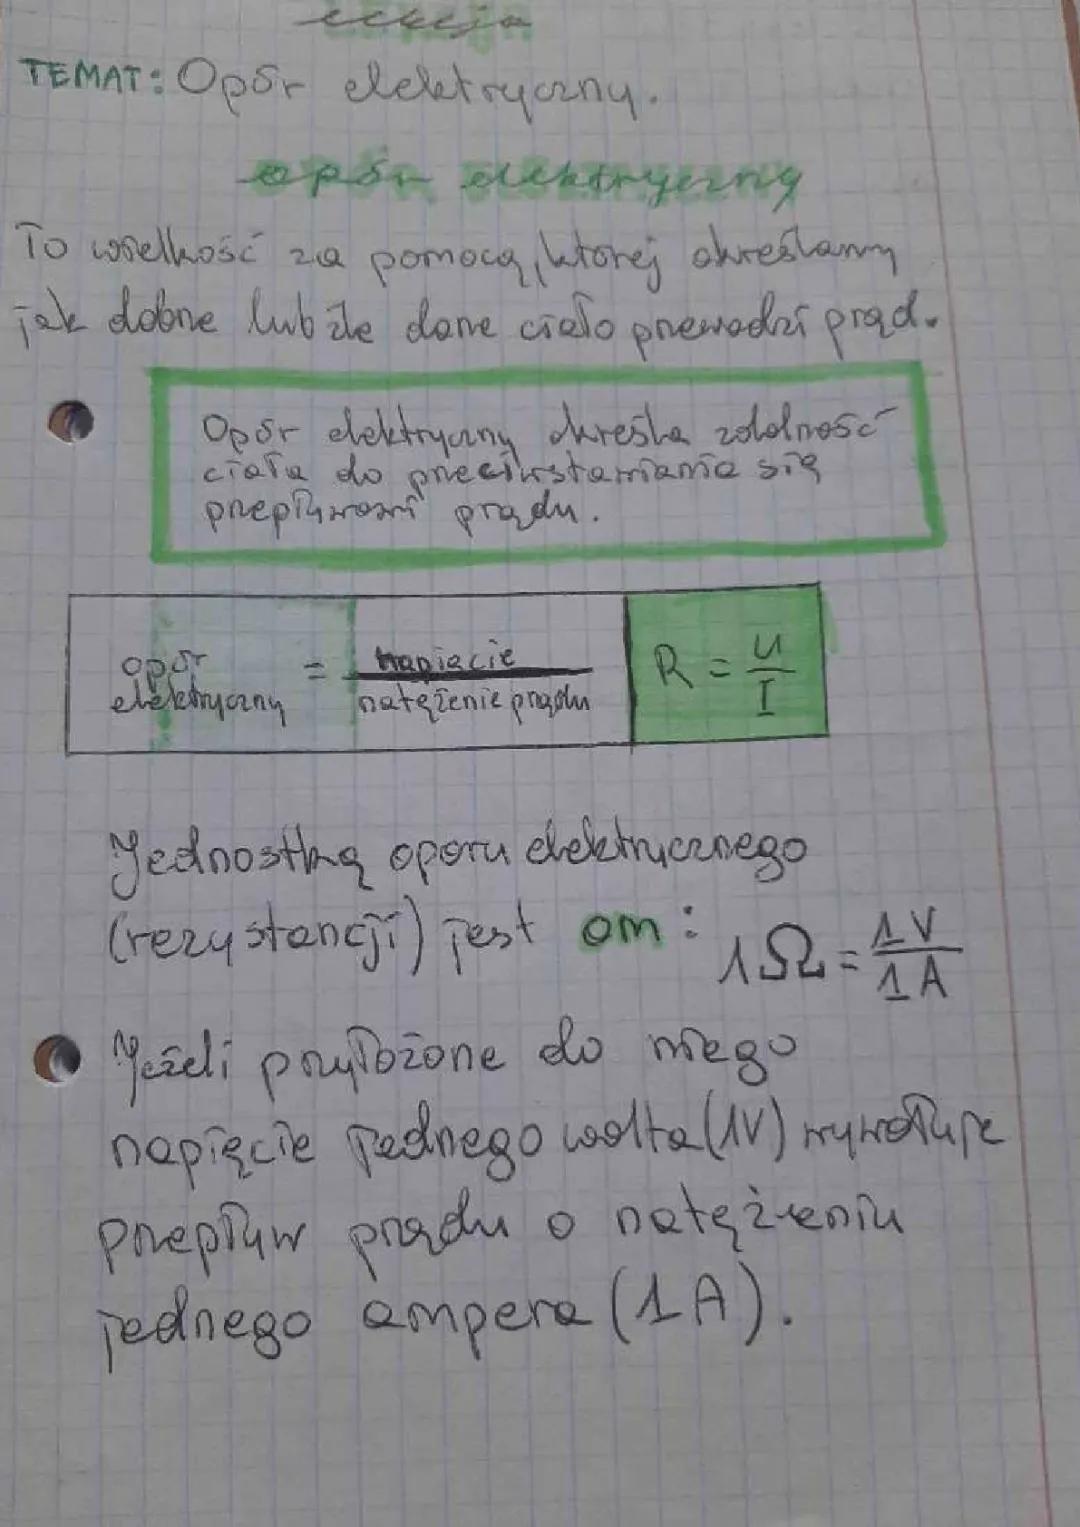 lekcja
TEMAT: Opór elektryczny.
opór elektryczny
To wielkość za pomocą, której określamy
jak dobrze lub źle dane ciało przewodzi prąd.
Opór elektryczny określa zdolność
ciała do przeciwstawiania się
przepływowi prądu.
opór elektryczny = napięcie / natężenie prądu
R = U / I
Jednostką oporu elektrycznego
(rezystancji) jest om: 1Ω = 1V / 1A
Jeżeli przyłożone do niego
napięcie jednego wolta (1V) wywołuje
przepływ prądu o natężeniu
jednego ampera (1A).